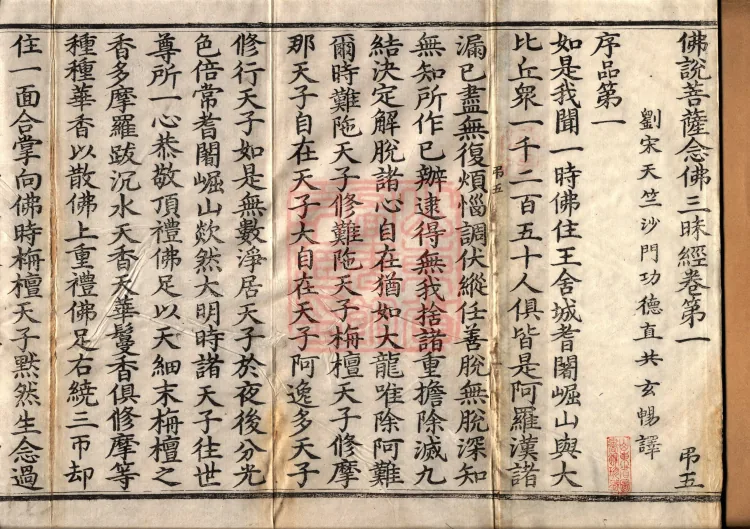 佛說菩薩念佛三昧經卷第一　弔五
劉宋天竺沙門功德直共玄暢譯
序品第一
如是我聞一時佛住王舍城耆闍崛山與大
比丘眾一千二百五十人俱皆是阿羅漢諸
弔五
漏已盡無復煩惱調伏縱任善脫無脫深知
無知所作已辦逮得無我捨諸重擔除滅九
結決定解脫諸心自在猶如大龍唯除阿難
爾時難陁天子修難陁天子栴檀天子修摩
那天子自在天子大自在天子阿逸多天子
修行天子如是無數淨居天子於夜後分光
色倍常耆闍崛山欻然大明時諸天子往世
尊所一心恭敬頂禮佛足以天細末栴檀之
香多摩羅跋沉水天香天華鬘香俱修摩等
種種華香以散佛上重禮佛足右繞三帀却
住一面合掌向佛時栴檀天子默然生念過